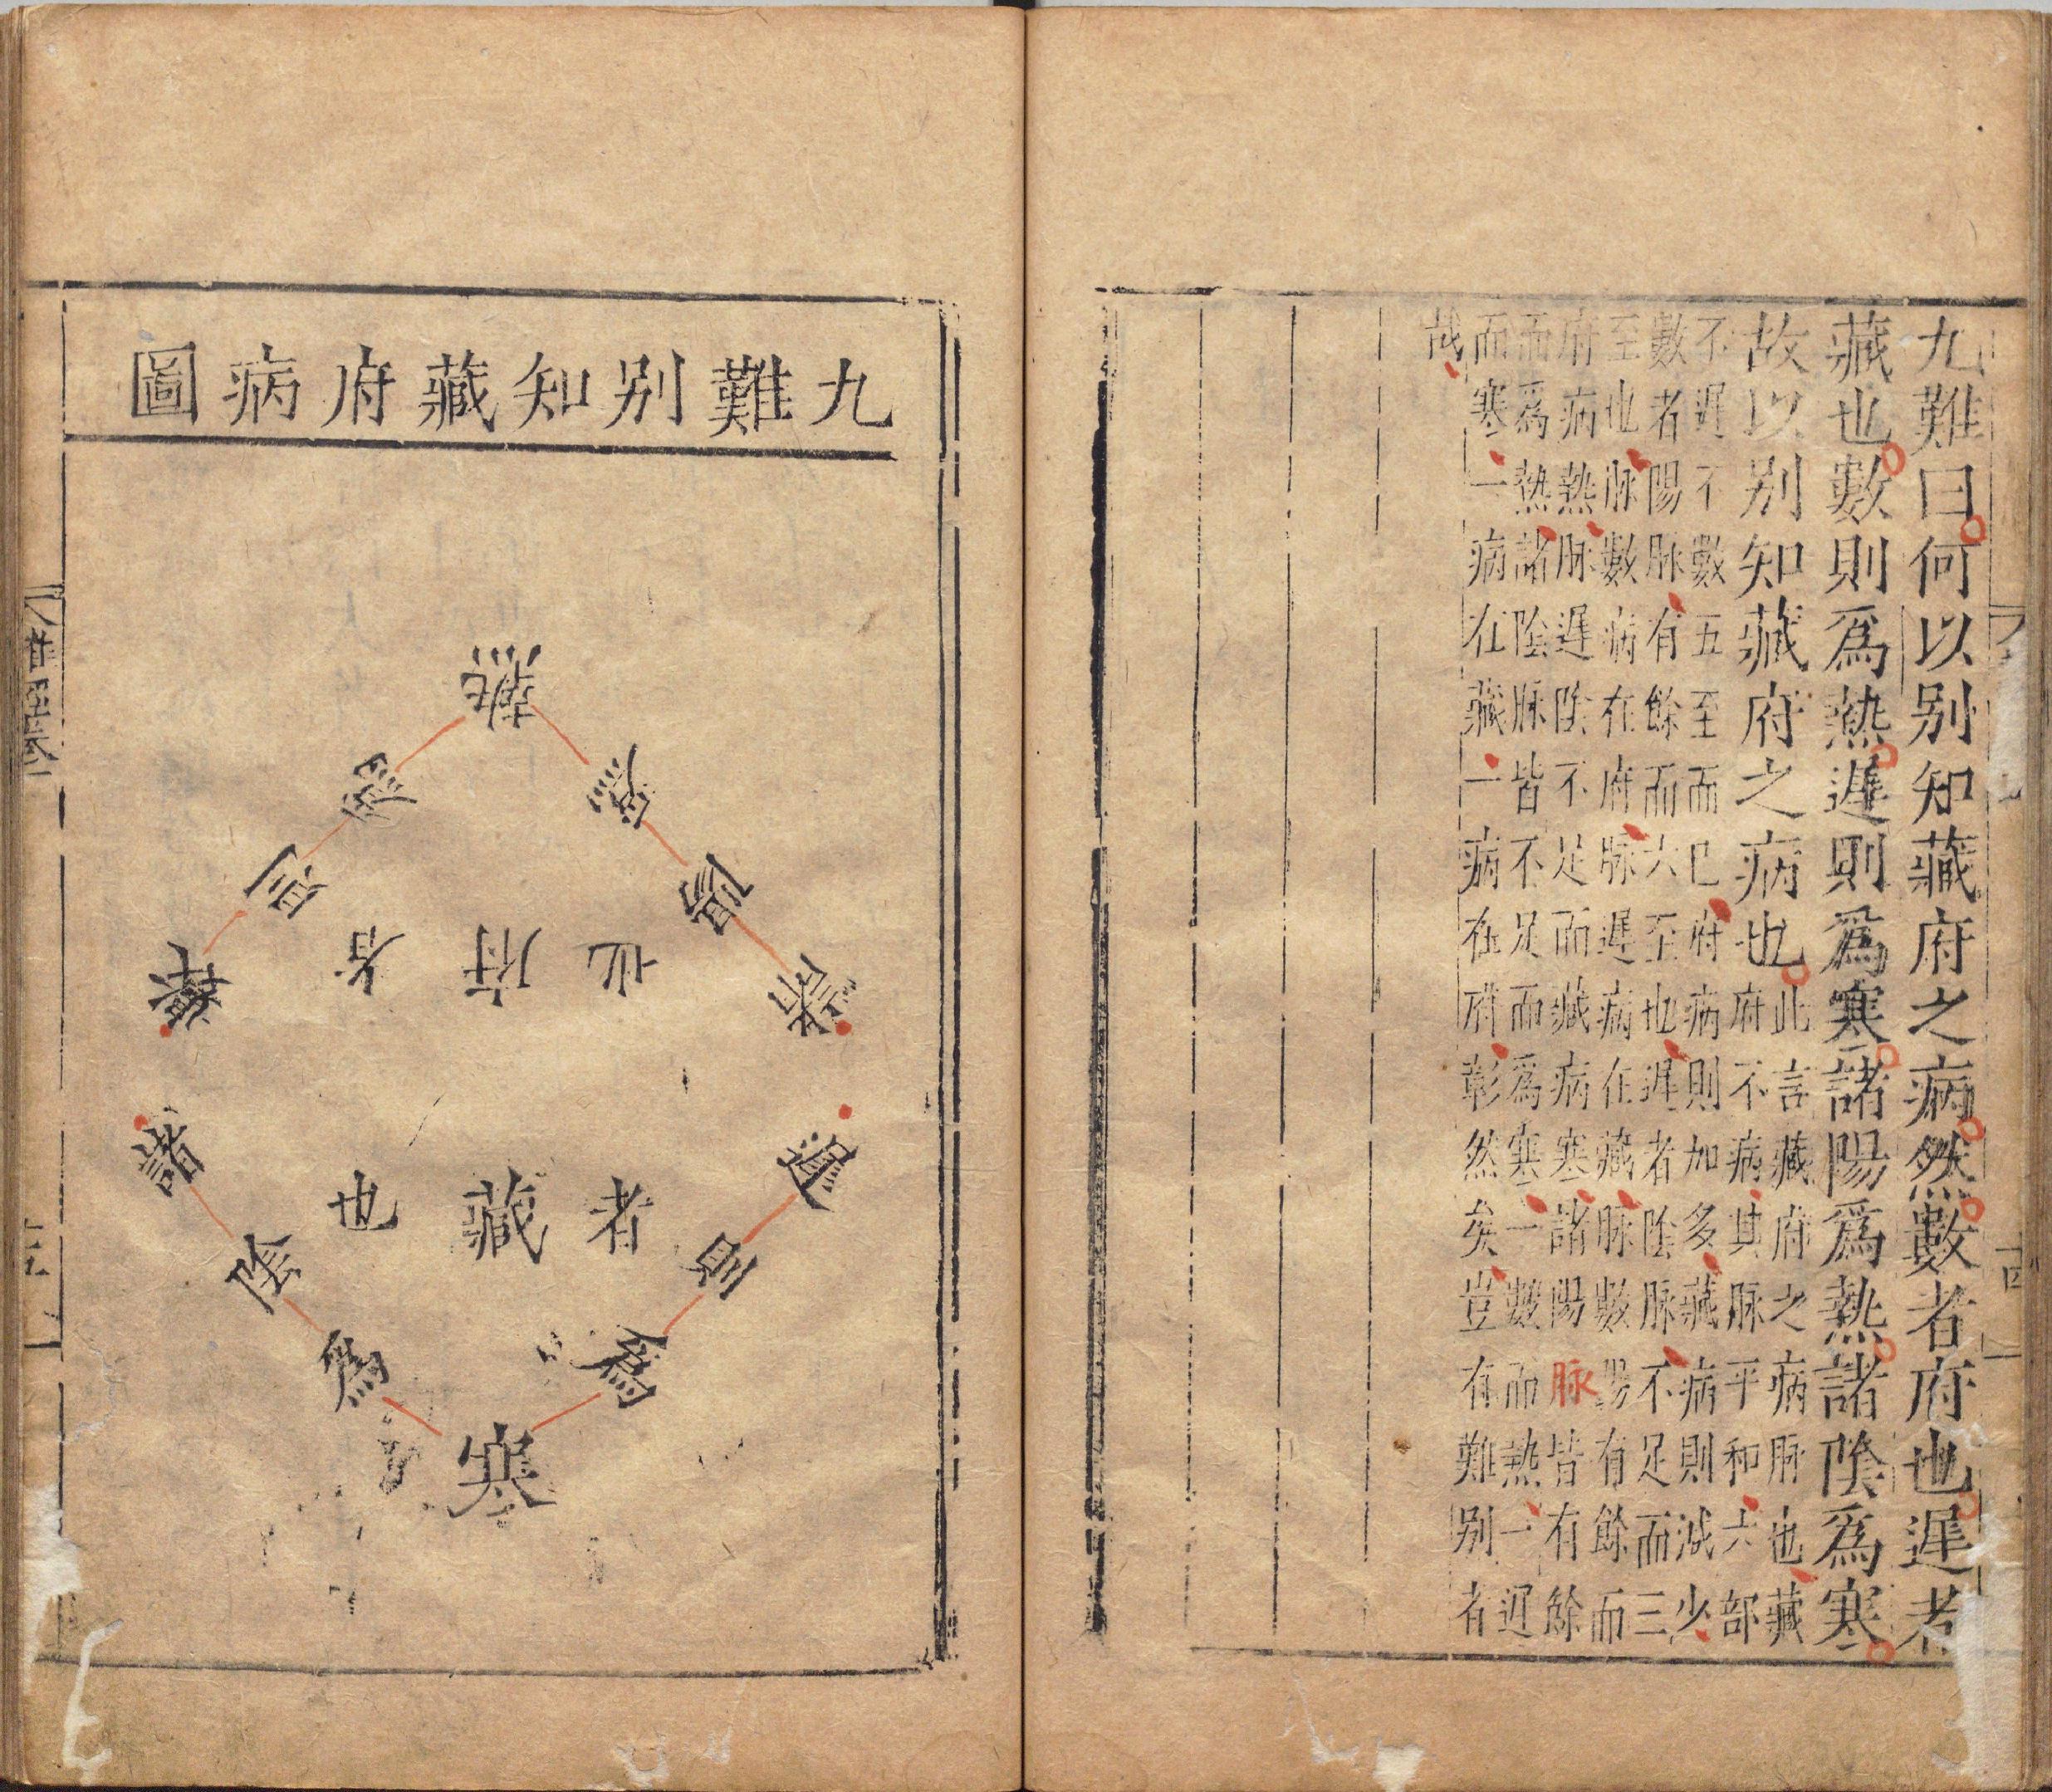 九難曰何以别知藏府之病然數者府也遲者
藏也數則爲熱遲則爲寒諸陽爲熱諸陰爲寒
故以别知藏府之病也
此言藏府之病脉也藏
府不病其脉平和六部
不遲不數五至而已府病則加多藏病則減少
數者陽脉有餘而六至也遲者陰脉不足而三
至也脉數病在府脉遲病在藏脉數陽有餘而
府病熱脉遲陰不足而藏病寒諸陽脉皆有餘
而爲熱諸陰脉皆不足而爲寒一數而熱一遲
而寒一病在藏一病在府彰然矣豈有難别者
哉
九難别知藏府病圖
數則爲熱
諸陽爲
者府也
遲則爲寒
諸陰爲
者藏也